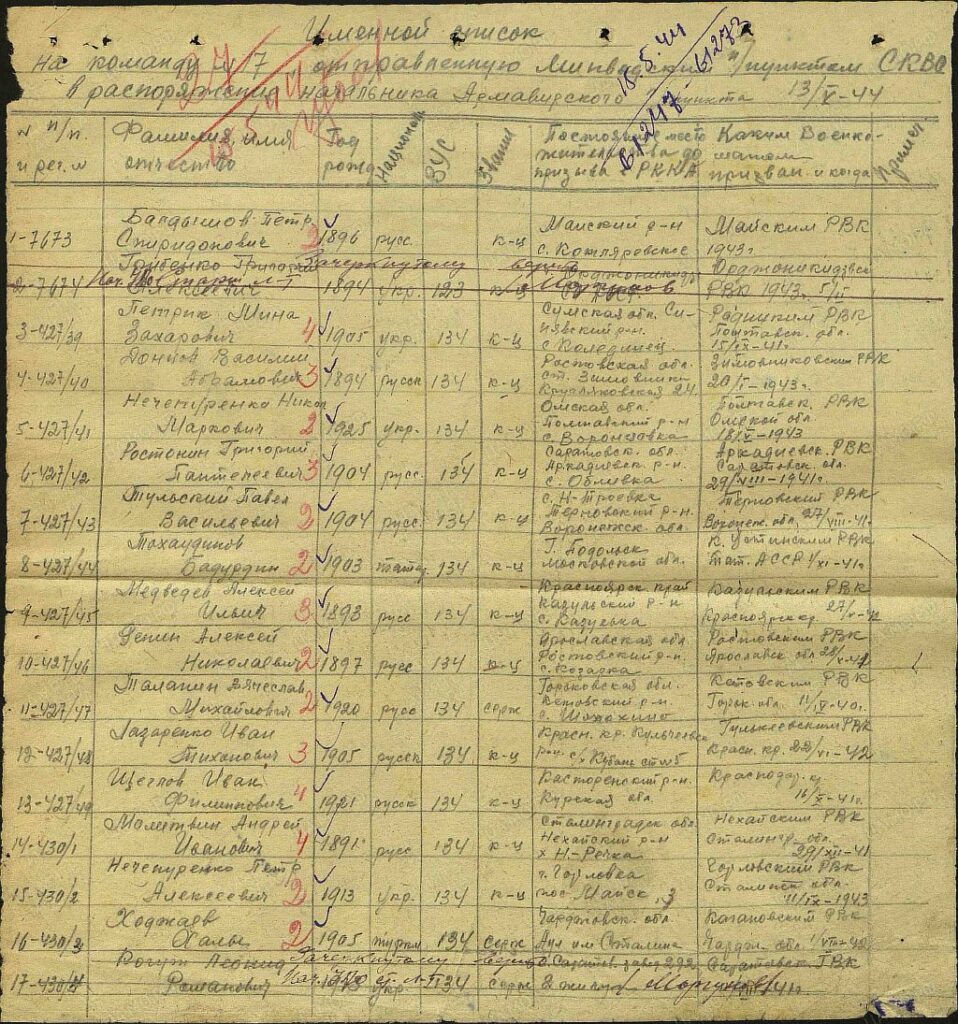 Именной список
На команду 41/7 отправленную Минводским п/пунктом СКВО
в распоряжение начальника Армавирского пункта 13/V-44
15.5.44
61247-61273
№ п/п. и рег. № Фамилия, имя отчество Год рожд Национальн ВУС Звание Постоянное место жительства до призыва в РККА Каким Военкоматом призван и когда Примеч
Багдышов Петр Майский р-н Майским РВК
1-7673 Спиридонович 2 1896 русс к-ц с. Котляревское 1943г.
Грибенко Григорий Зачеркнутому верить Орджоникидз Орджоникидзевск
2-7674 Алексеевич 1894 укр. 123 РВК 1943г. 5/II
Петрик Мина Сумская обл. Си- РВК
3-427/39 Захарович 4 1905 укр. 134 к-ц нявский р-н. Полтавск. обл.
15/IX-41г.
Василий Ростовская обл. Зимовниковским РВК
4-427/40 Абрамович 3 1894 русск 134 к-ц ст. Зимовники 20/I-1943г.
24
Нечепуренко Никол Омская обл. Полтавск. РВК
5-427/41 Маркович 2 1925 укр. 134 к-ц Полтавский р-н Омской обл.
с. Воронцовка 18/V-1943
Ростонин Григорий Саратовск. обл. Аркадакск. РВК
6-427/42 Пантелеевич 3 1904 русс. 134 к-ц р-н. Саратовск. обл.
с. Обливка 29/VIII-1941г.
Тульский Павел с. Н-Троевка Терновский РВК
7-427/43 Васильевич 2 1904 русс. 134 к-ц Терновский р-н. Воронеж. обл. 27/VIII-41.
Воронежск обл.
Тохаудинов г. Подольск к. Устинским РВК
8-427/44 Бадурдин 2 1903 татар 134 к-ц Московской обл. Тат. АССР 1/XI-41г.
Медведев Алексей Красноярск. край РВК
9-427/45 Ильич 3 1893 русс 134 к-ц р-н Красноярскр. 27/X-42
с.
Демин Алексей Ярославская обл. Ростовским РВК
10-427/46 Николаевич 2 1897 русс 134 к-ц Ростовский р-н. Ярославск обл 28/X-41
Талапин Вячеслав Горьковская обл. РВК
11-427/47 Михайлович 2 1920 русс 134 серж р-н Горьк обл. 11/V-40г.
с.
Лазаренко Иван Красн. кр. РВК
12-427/48 Тиханович 3 1905 русск 134 к-ц Кубань Красн. кр. 22/VI-42
Щеглов Иван Касторенский р-н. Краснодар. к
13-427/49 Филиппович 4 1921 русск 134 к-ц Курская обл. 16/X-41г.
Молитвин Андрей Сталинградск обл Нехайским РВК
14-430/1 Иванович 4 1891 русс 134 к-ц Нехайский р-н Сталингр. обл.
х Н-Речка 29/XII-41
Нечепуренко Петр г. Горловка Горловский РВК
15-430/2 Алексеевич 2 1913 укр. 134 к-ц пос. Майск, 3 Сталинск обл.
11/IX-1943
Ходжаев Чарджовск. обл. РВК
16-430/3 Халы 2 1905 туркм 134 серж Аул им Сталина Чардж. обл. 1/VIII-42
Рогуж Леонид Зачеркнутому верить Саратов. завод 292 Саратовск. ГВК
17-430/4 Романович укр. 134 серж 41г.